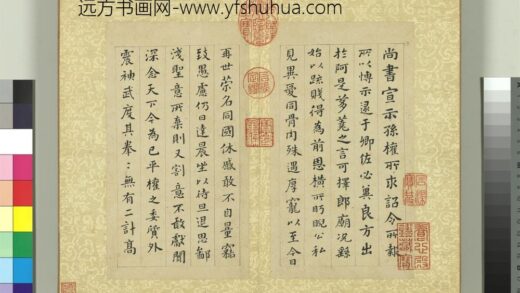 远方书画网- www.yfshuhua.com
尚書宣示孫權所求詔令所報
所以博示逮于卿佐必冀良方出
於阿是芻蕘之言可擇郎廟況繇
始以疏賤得為前恩橫所眄睨公私
見異愛同骨肉殊遇厚寵以至今日
再世榮名同國休慼敢不自量竊
致愚慮仍日達晨坐以待旦退思鄙
淺聖意所棄則又割意不敢獻聞
深念天下今為已平權之委質外
震神武度其拳〻無有二計高